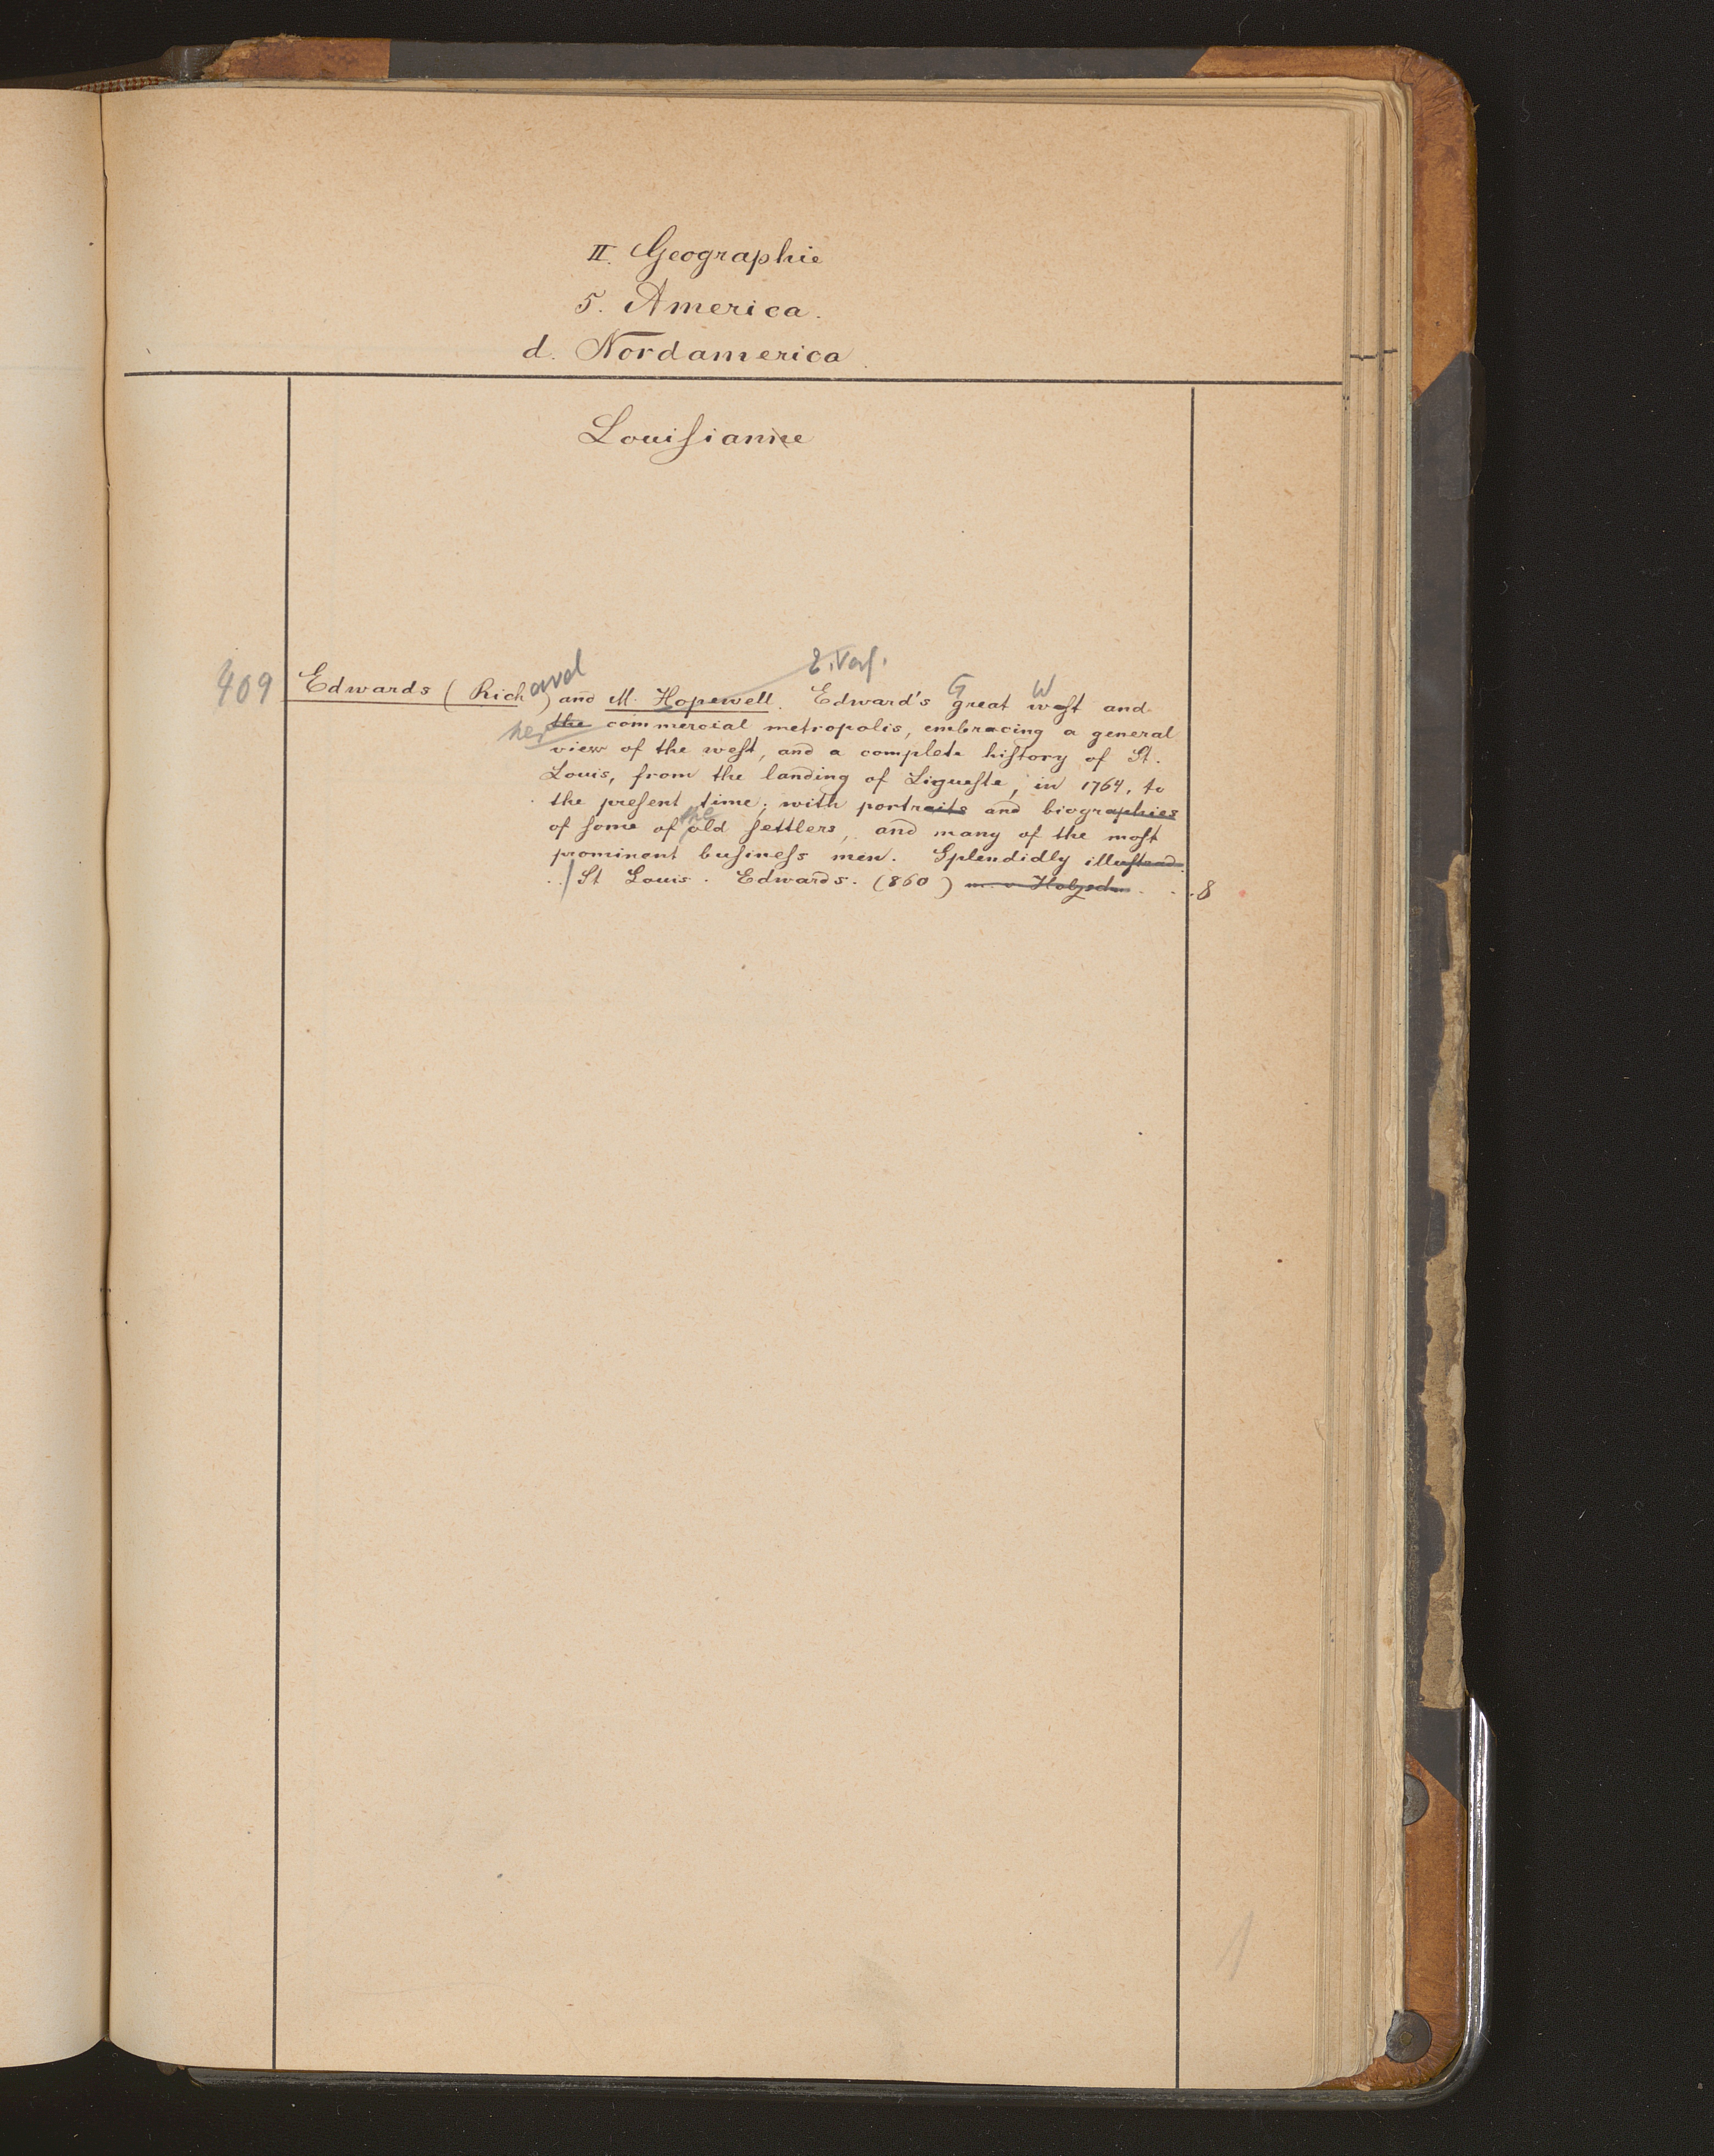 II. Geographie
5. America.
d. Nordamerica
Louiſianne
409
E. Verf.
Edwards (Richard) and M. Hopewell. Edward's Great West and
her the commercial metropolis, embracing a general
view of the weſt, and a complete hiſtory of St.
Louis, from the landing of Ligueſte, in 1764, to
the preſent time; with portraits and biographies
of ſome of the old ſettlers, and many of the moſt
prominent buſineſs men. Splendidly
St Louis. Edwards. (860) m. v. Holzschn. 8